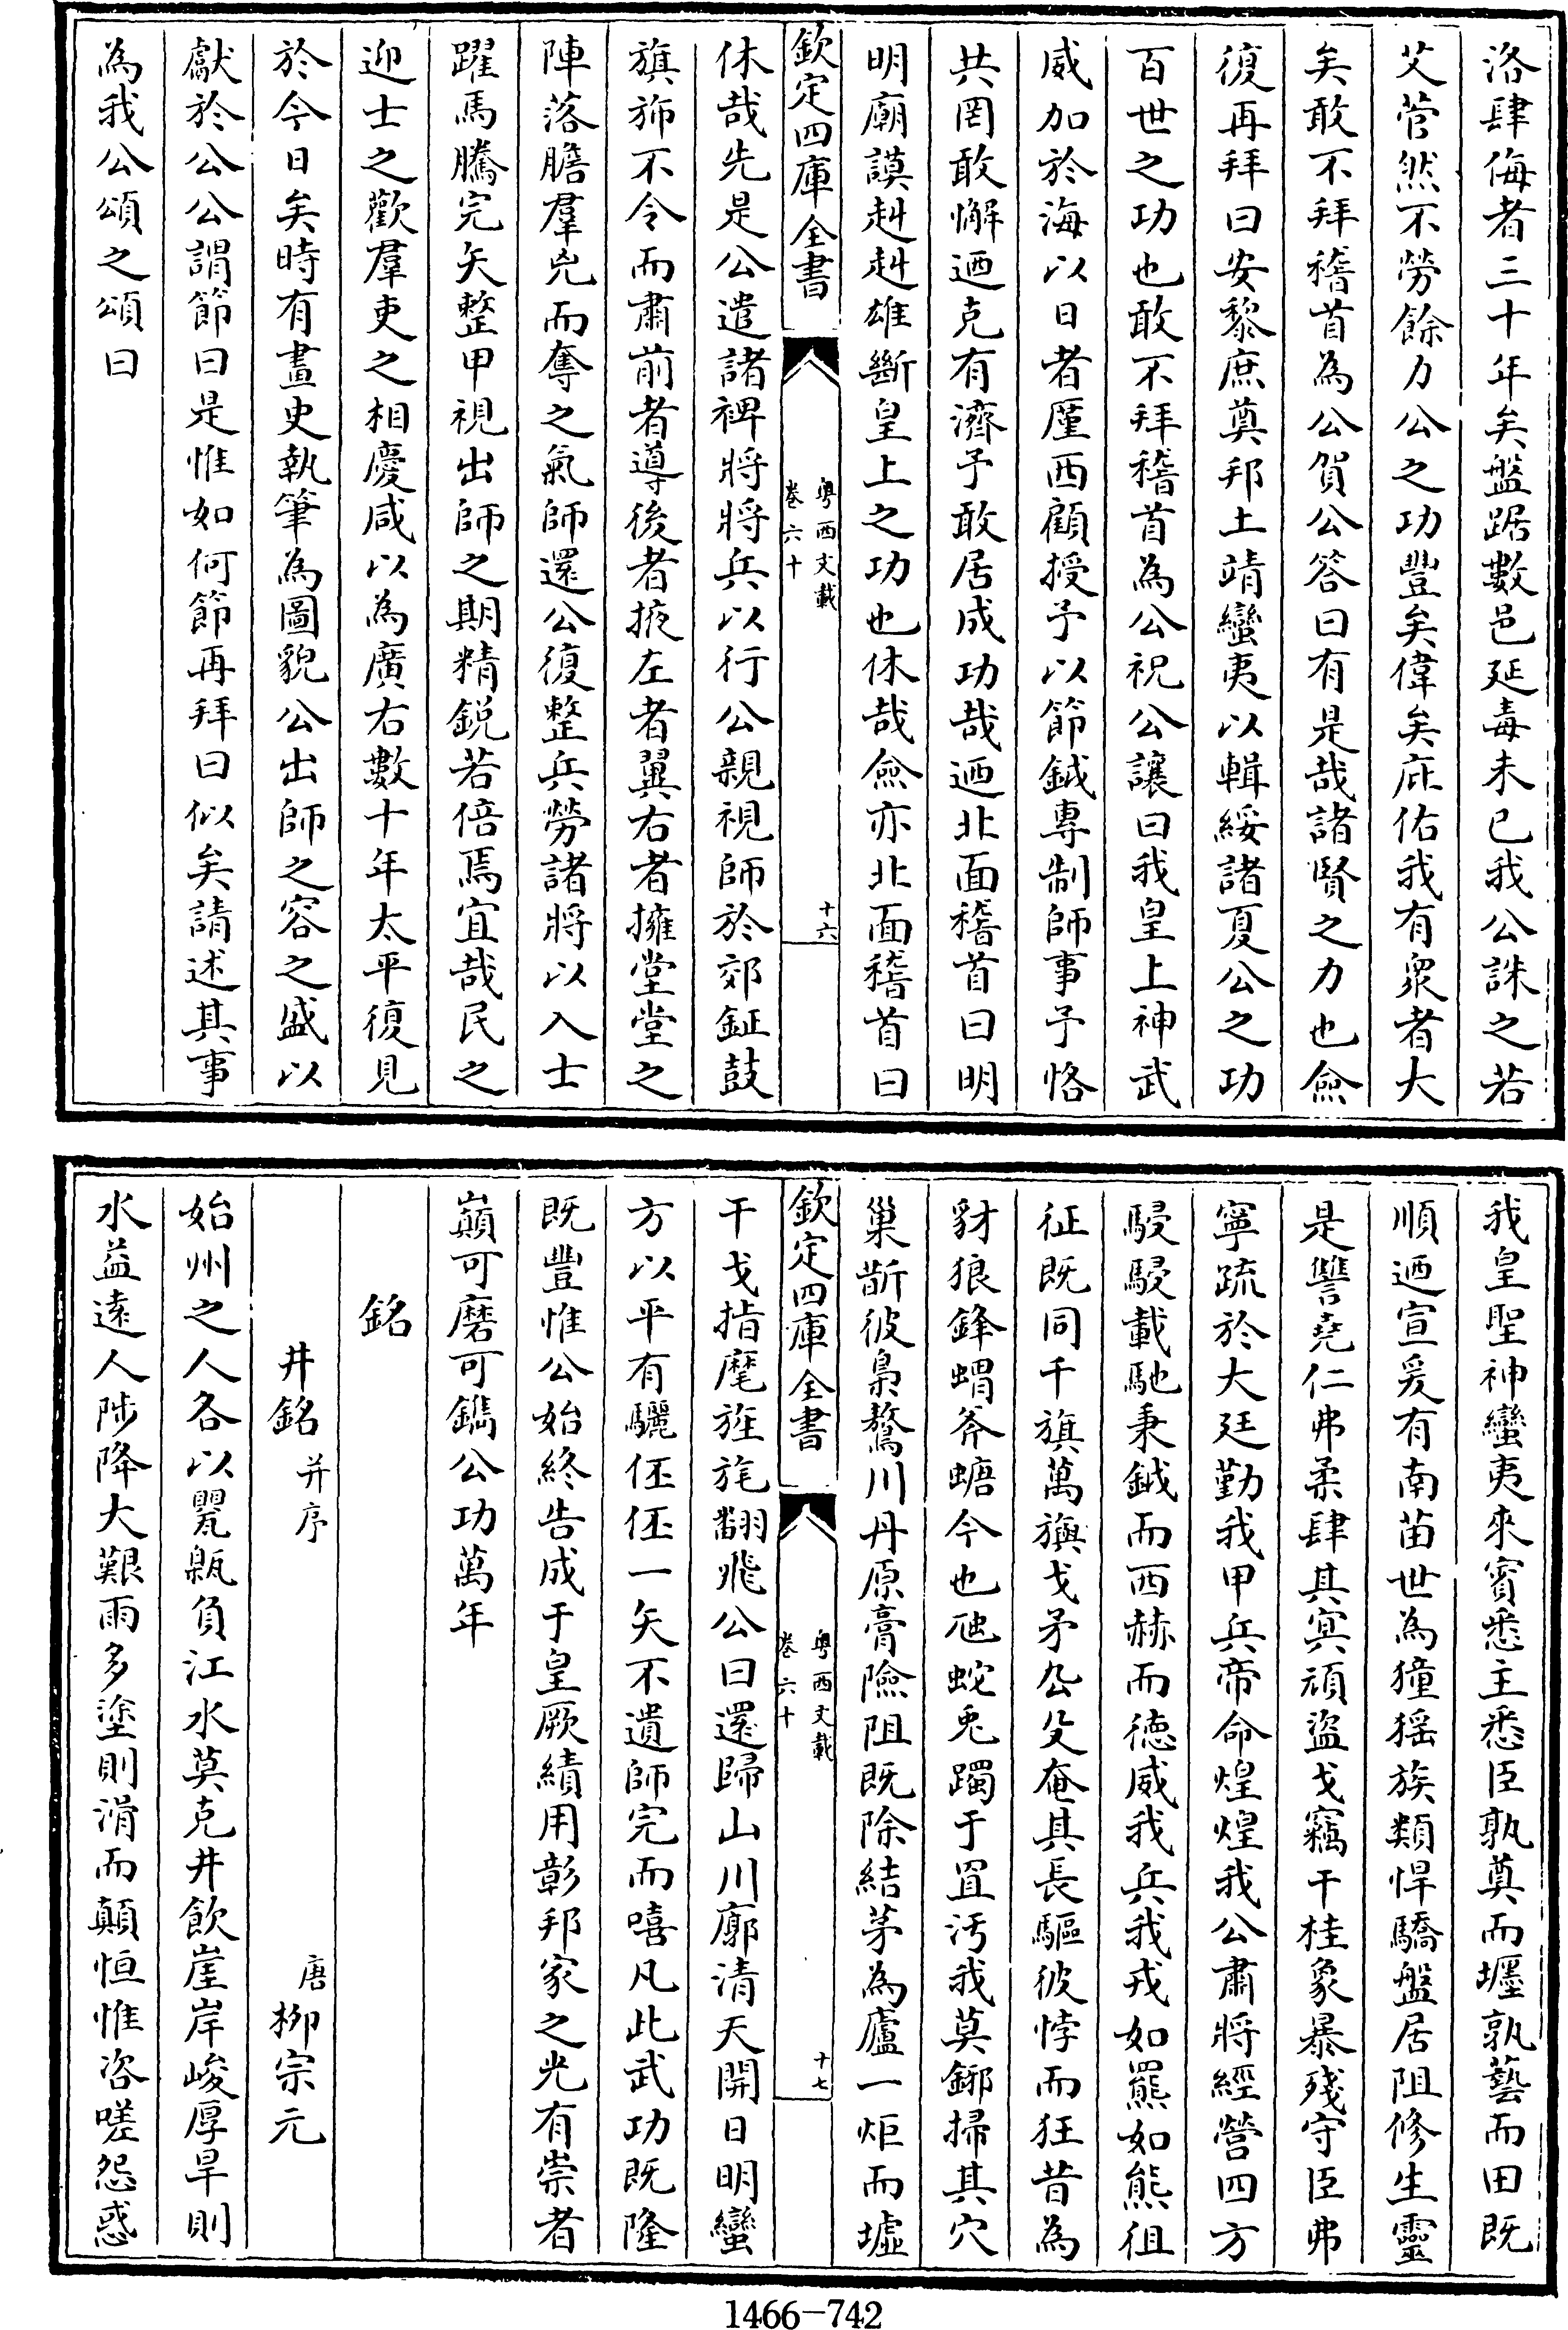 洛肆侮者三十年矣盤踞數邑延毒未已我公誅之若
艾菅然不勞餘力公之功豐矣偉矣庇佑我有衆者大
矣敢不拜稽首為公賀公答曰有是哉諸賢之力也僉
復再拜曰安黎庶奠邦土靖蠻夷以輯綏諸夏公之功
百世之功也敢不拜稽首為公祝公讓曰我皇上神武
威加於海以日者厪西顧授予以節鉞專制師事予恪
共罔敢懈迺克有濟予敢居成功哉迺北面稽首曰明
明廟謨赳赳雄斷皇上之功也休哉僉亦北面稽首曰
欽定四庫全書
粤西文載
卷六十
十六
休哉先是公遣諸裨將將兵以行公親視師於郊鉦鼓
旗斾不令而肅前者導後者掖左者翼右者擁堂堂之
陣落膽羣兇而奪之氣師還公復整兵勞諸將以入士
躍馬騰完矢整甲視出師之期精鋭若倍焉宜哉民之
迎士之歡羣吏之相慶咸以為廣右數十年太平復見
於今日矣時有畫史執筆為圖貌公出師之容之盛以
獻於公公謂節曰是惟如何節再拜曰似矣請述其事
為我公頌之頌曰
我皇聖神蠻夷來賓悉主悉臣孰奠而壥孰藝而田既
順迺宣爰有南苗世為獞猺族類悍驕盤居阻修生靈
是讐堯仁弗柔肆其寞頑盜戈竊干桂象暴殘守臣弗
寧疏於大廷勤我甲兵帝命煌煌我公肅將經營四方
駸駸載馳秉鉞而西赫而德威我兵我戎如羆如熊徂
征既同千旗萬旟戈矛厹殳奄其長驅彼悖而狂昔為
豺狼鋒蝟斧螗今也虺蛇兎躅于罝汚我莫鋣掃其穴
巢斮彼梟鷔川丹原膏險阻既除結茅為廬一炬而墟
欽定四庫全書
粤西文載
卷六十
十七
干戈指麾旌旄翻飛公曰還歸山川廓清天開日明蠻
方以平有驪伾伾一矢不遺師完而嘻凡此武功既隆
既豐惟公始終告成于皇厥績用彰邦家之光有崇者
巔可磨可鐫公功萬年
銘
井銘 并序
唐 柳宗元
始州之人各以甖瓵負江水莫克井飲崖岸峻厚旱則
水益遠人陟降大艱雨多塗則滑而顛恒惟咨嗟怨惑
1466-742